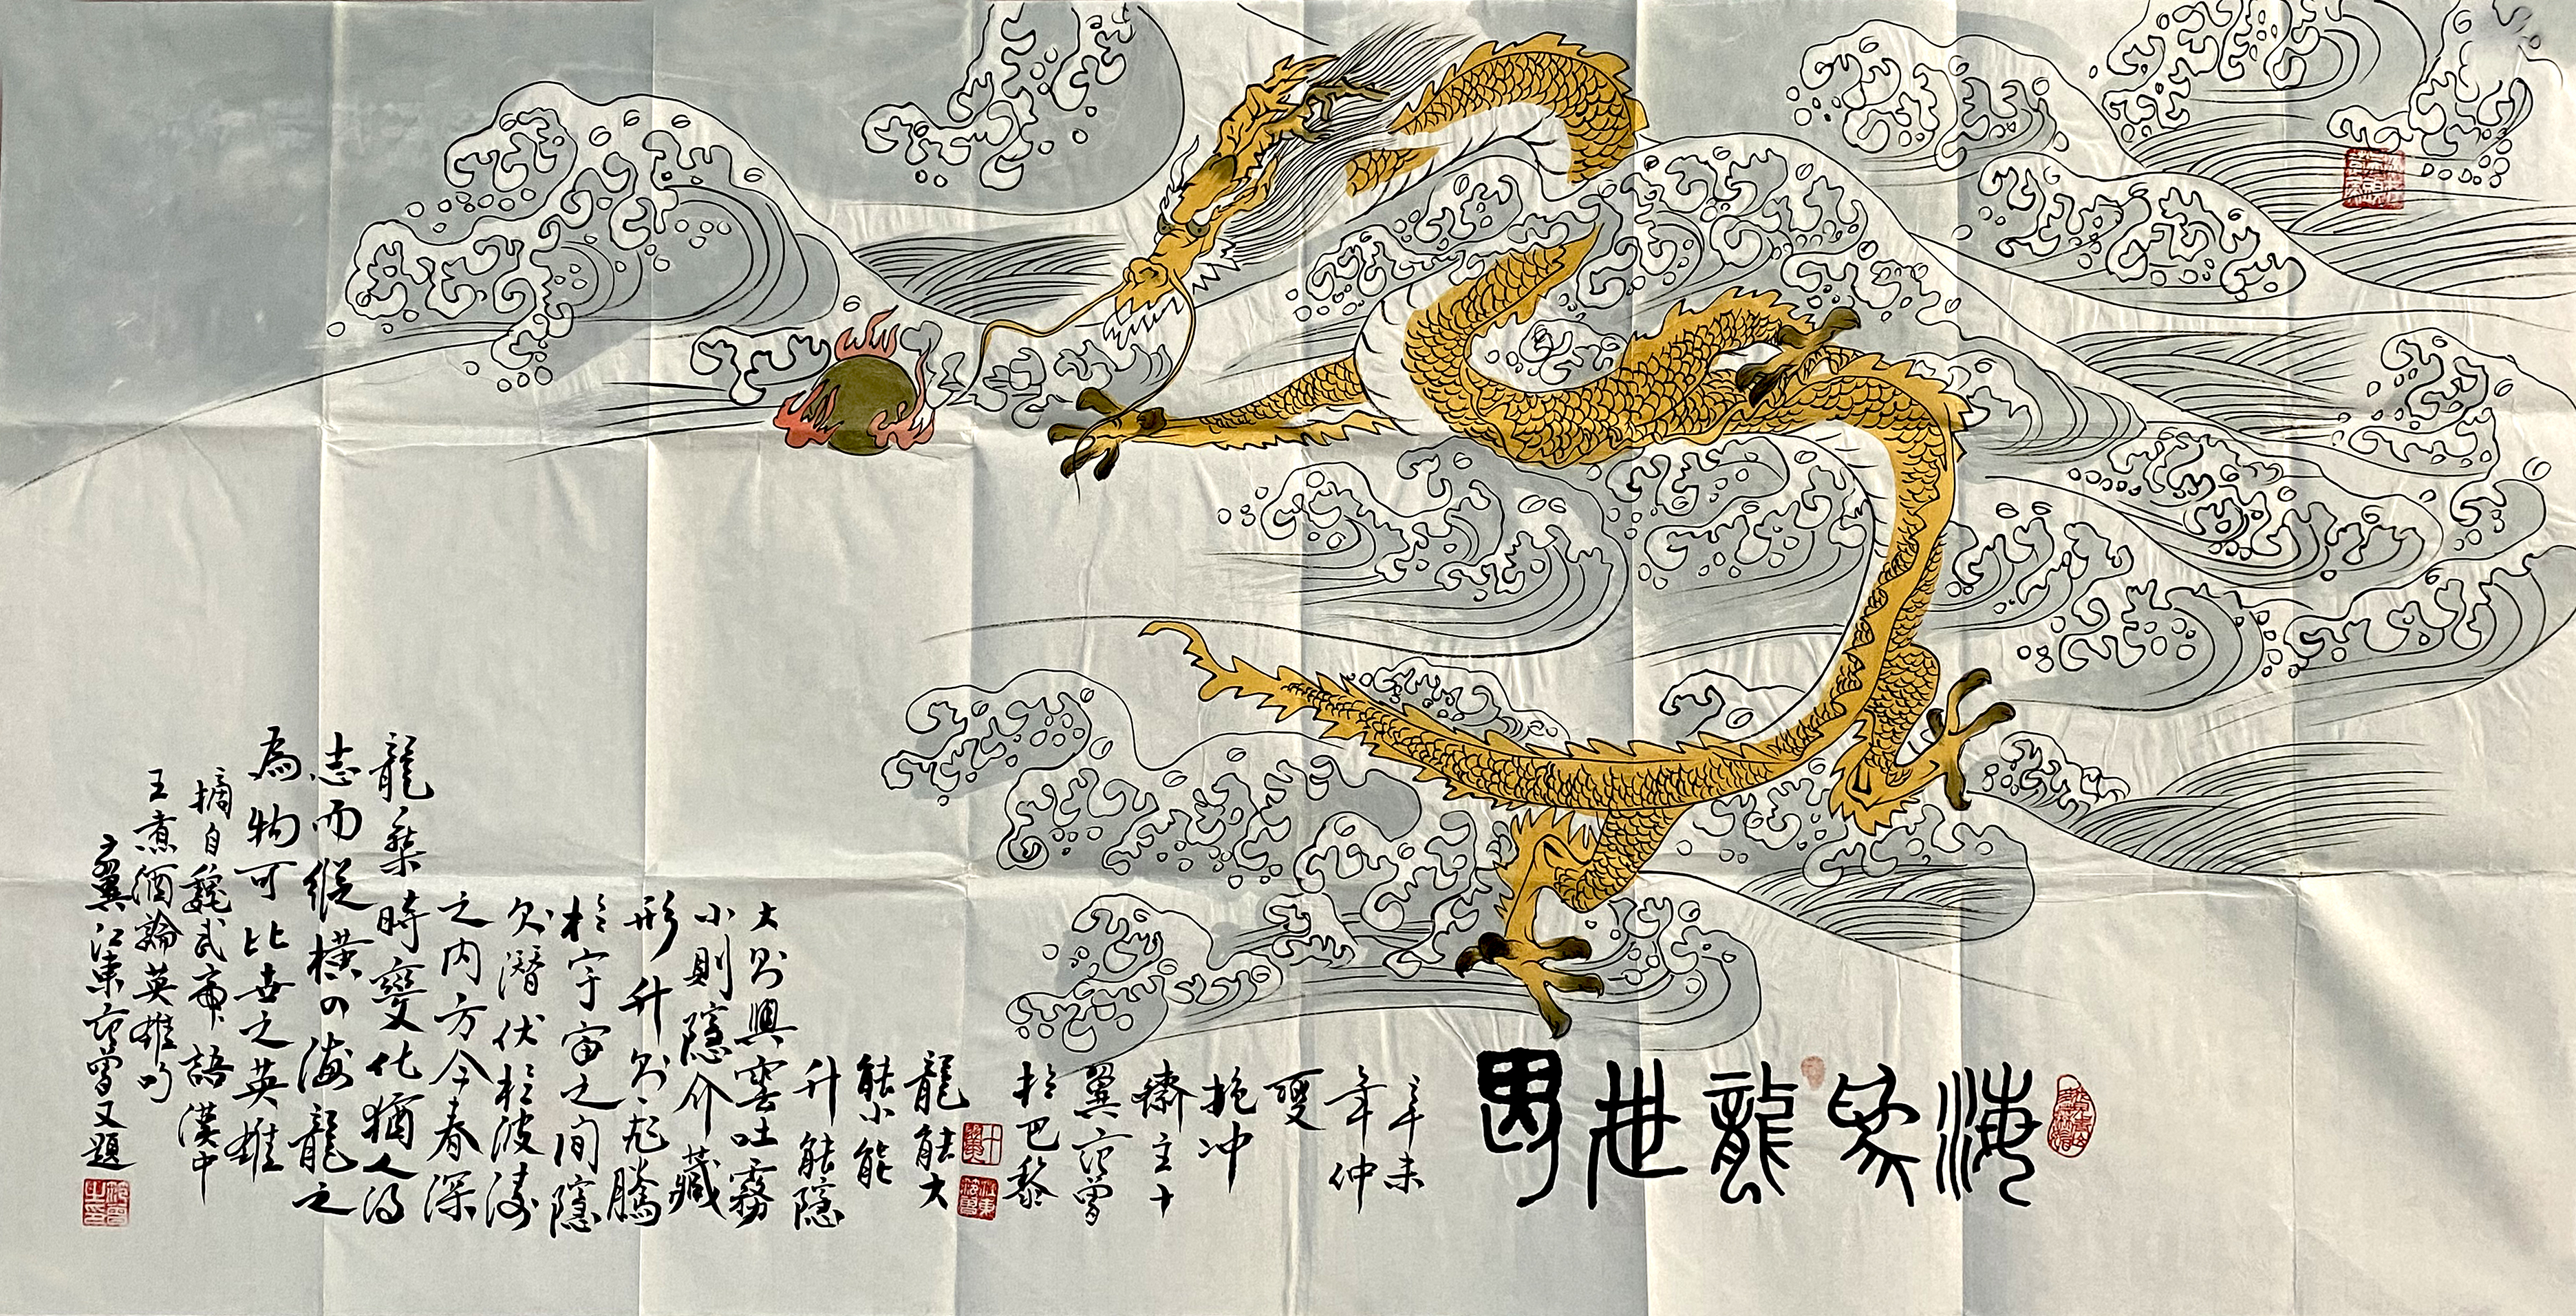 海為龍世界
辛未
年仲
夏
抱冲
齋主十
翼范曾
於巴黎
龍能大
能小能
升能隱
大則興雲吐霧
小則隱介藏
形升則飛騰
於宇宙之間隱
則潛伏於波濤
之内方今春深
龍乘時變化猶人得
志而縱橫四海龍之
為物可比世之英雄
摘自魏武帝語漢中
王煮酒論英雄句
十翼江東范曾又題